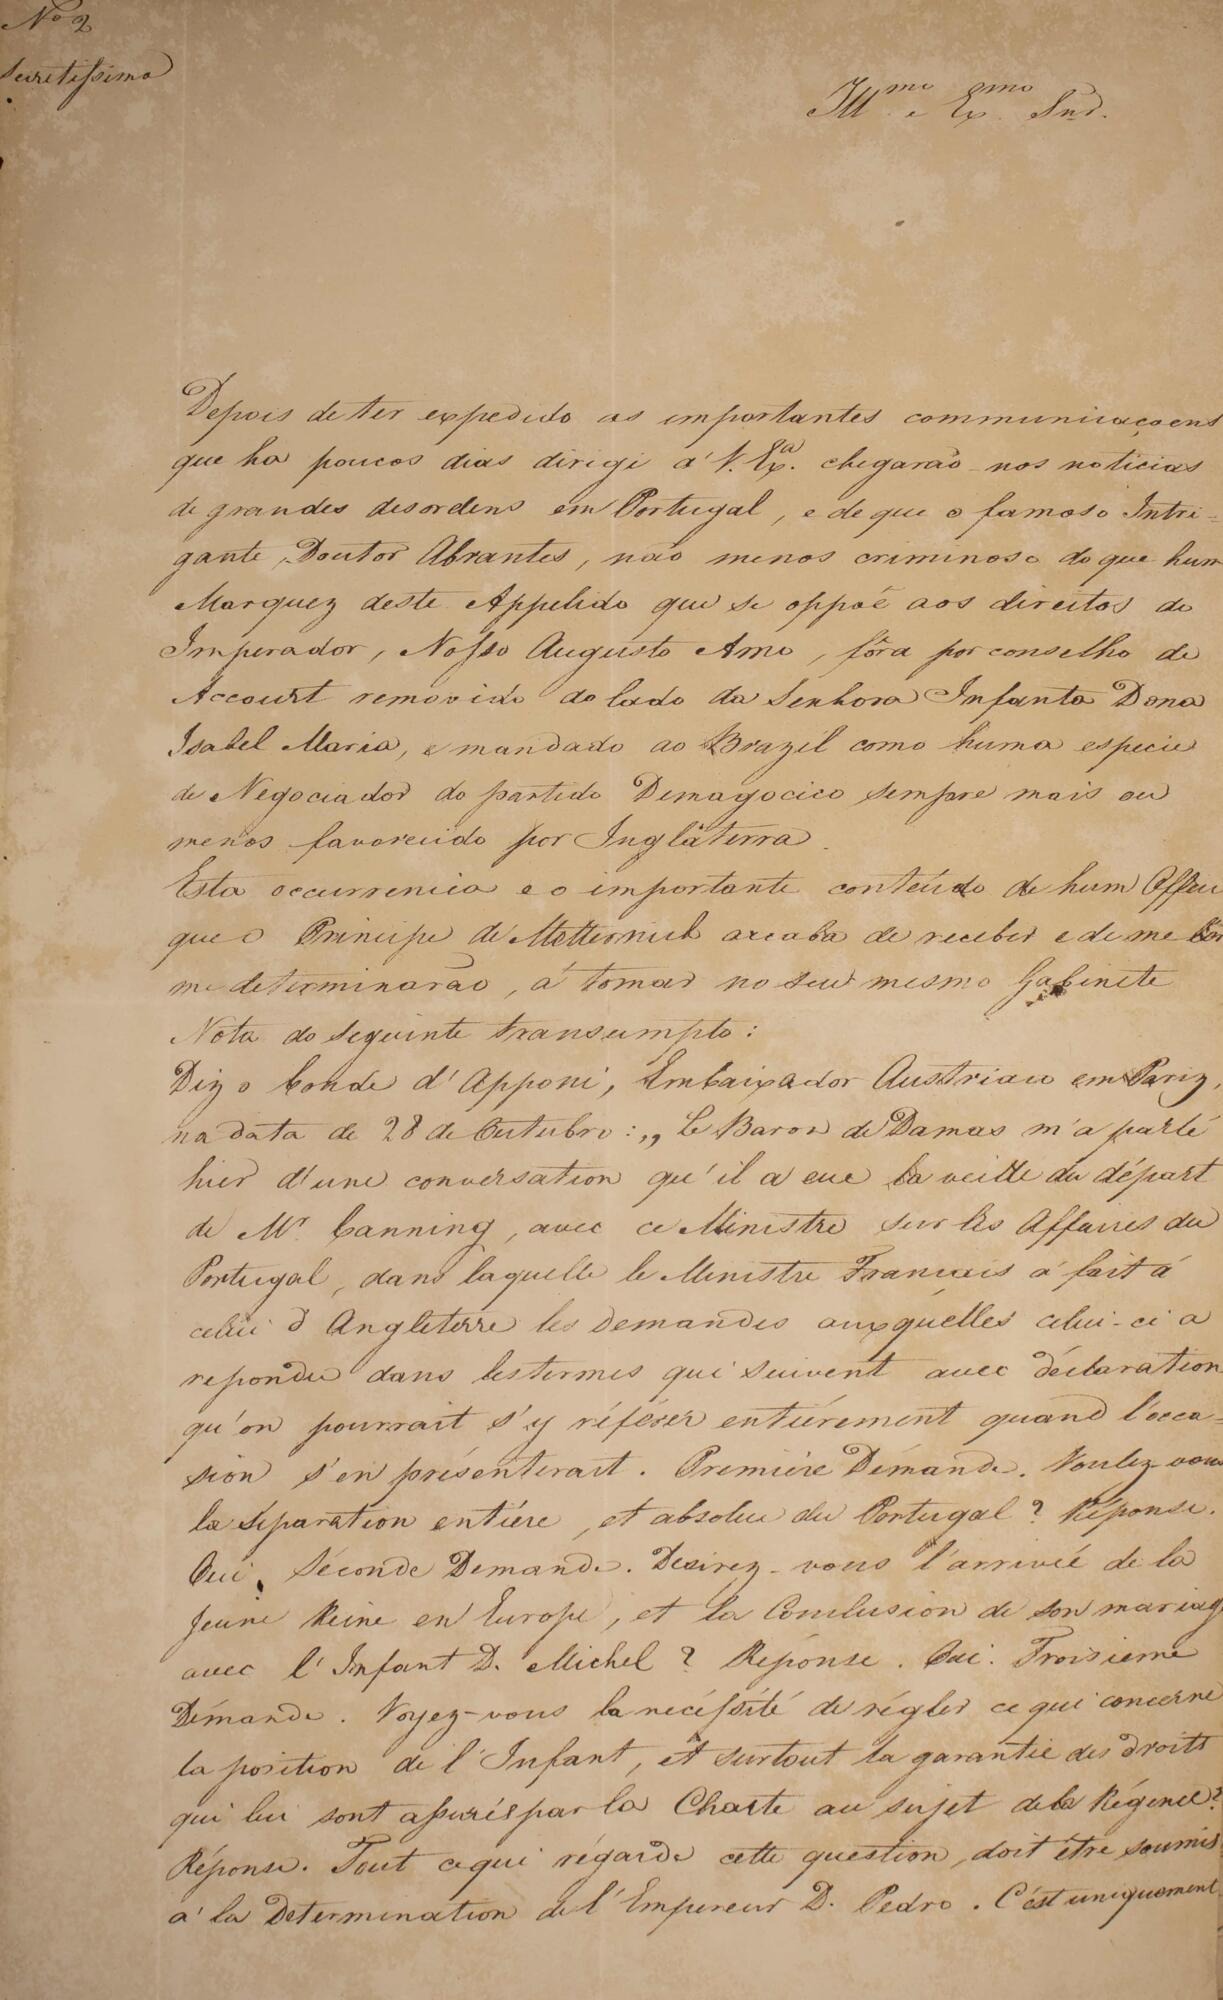 Nº 2
Secretissimo
Illmo e Exmo Snr.
Depois de ter expedido as importantes communicaçoens
que ha poucos dias dirigi á V. Exª. chegarão-nos noticias
de grandes desordens em Portugal, e de que o famoso Intri-
gante, Doutor Abrantes, não menos criminoso do que hum
Marquez deste Appelido que se oppoê aos direitos do
Imperador, Nosso Augusto Amo, fôra por conselho de
Accourt removido do lado da Senhora Infanta Dona
Isabel Maria, e mandado ao Brazil como huma especie
de Negociador do partido Demagocico sempre mais ou
menos favorecido por Inglaterra.
Esta occurrencia e o importante conteúdo de hum Officio
que o Principe de Metternich acaba de receber e de me
me determinarão, á tomar no seu mesmo Gabinete
Nota do seguinte transumpto:
Diz o Conde d'Apponi, Embaixador Austriaco em Pariz,
na data de 28 de Outubro: „ Le Baron de Damas m'a parlé
hier d'une conversation qu'il a eue la veille du départ
de Mr. Canning, avec ce Ministre sur les Affaires du
Portugal, dans laquelle le Ministre Francais á fait á
celui d'Angleterre les demandes auxquélles celui-ci a
repondu dans les termes qui suivent avec déclaration
qu'on pourrait s'y référer entiérement quand l'occa-
sion s'en présenterait. Premiére Démande. Voulez-vous
la séparation entiére, et absolue du Portugal? Réponse.
Oui. Séconde Demande. Desirez-vous l'arrivée de la
jeune Reine en Europe, et la Conclusion de son mariage
avec l'Infant D. Michel? Réponse. Oui. Troisieme
Démande. Voyez-vous la necéssité de régler ce qui concerne
la position de l'Infant, et surtout la garantie des droits
qui lui sont assurés par la Charte au sujet de la Régence?
Réponse. Tout ce qui régarde cette question, doit être soumis
á la Determination de l'Empereur D. Pedro. C'ést uniquement